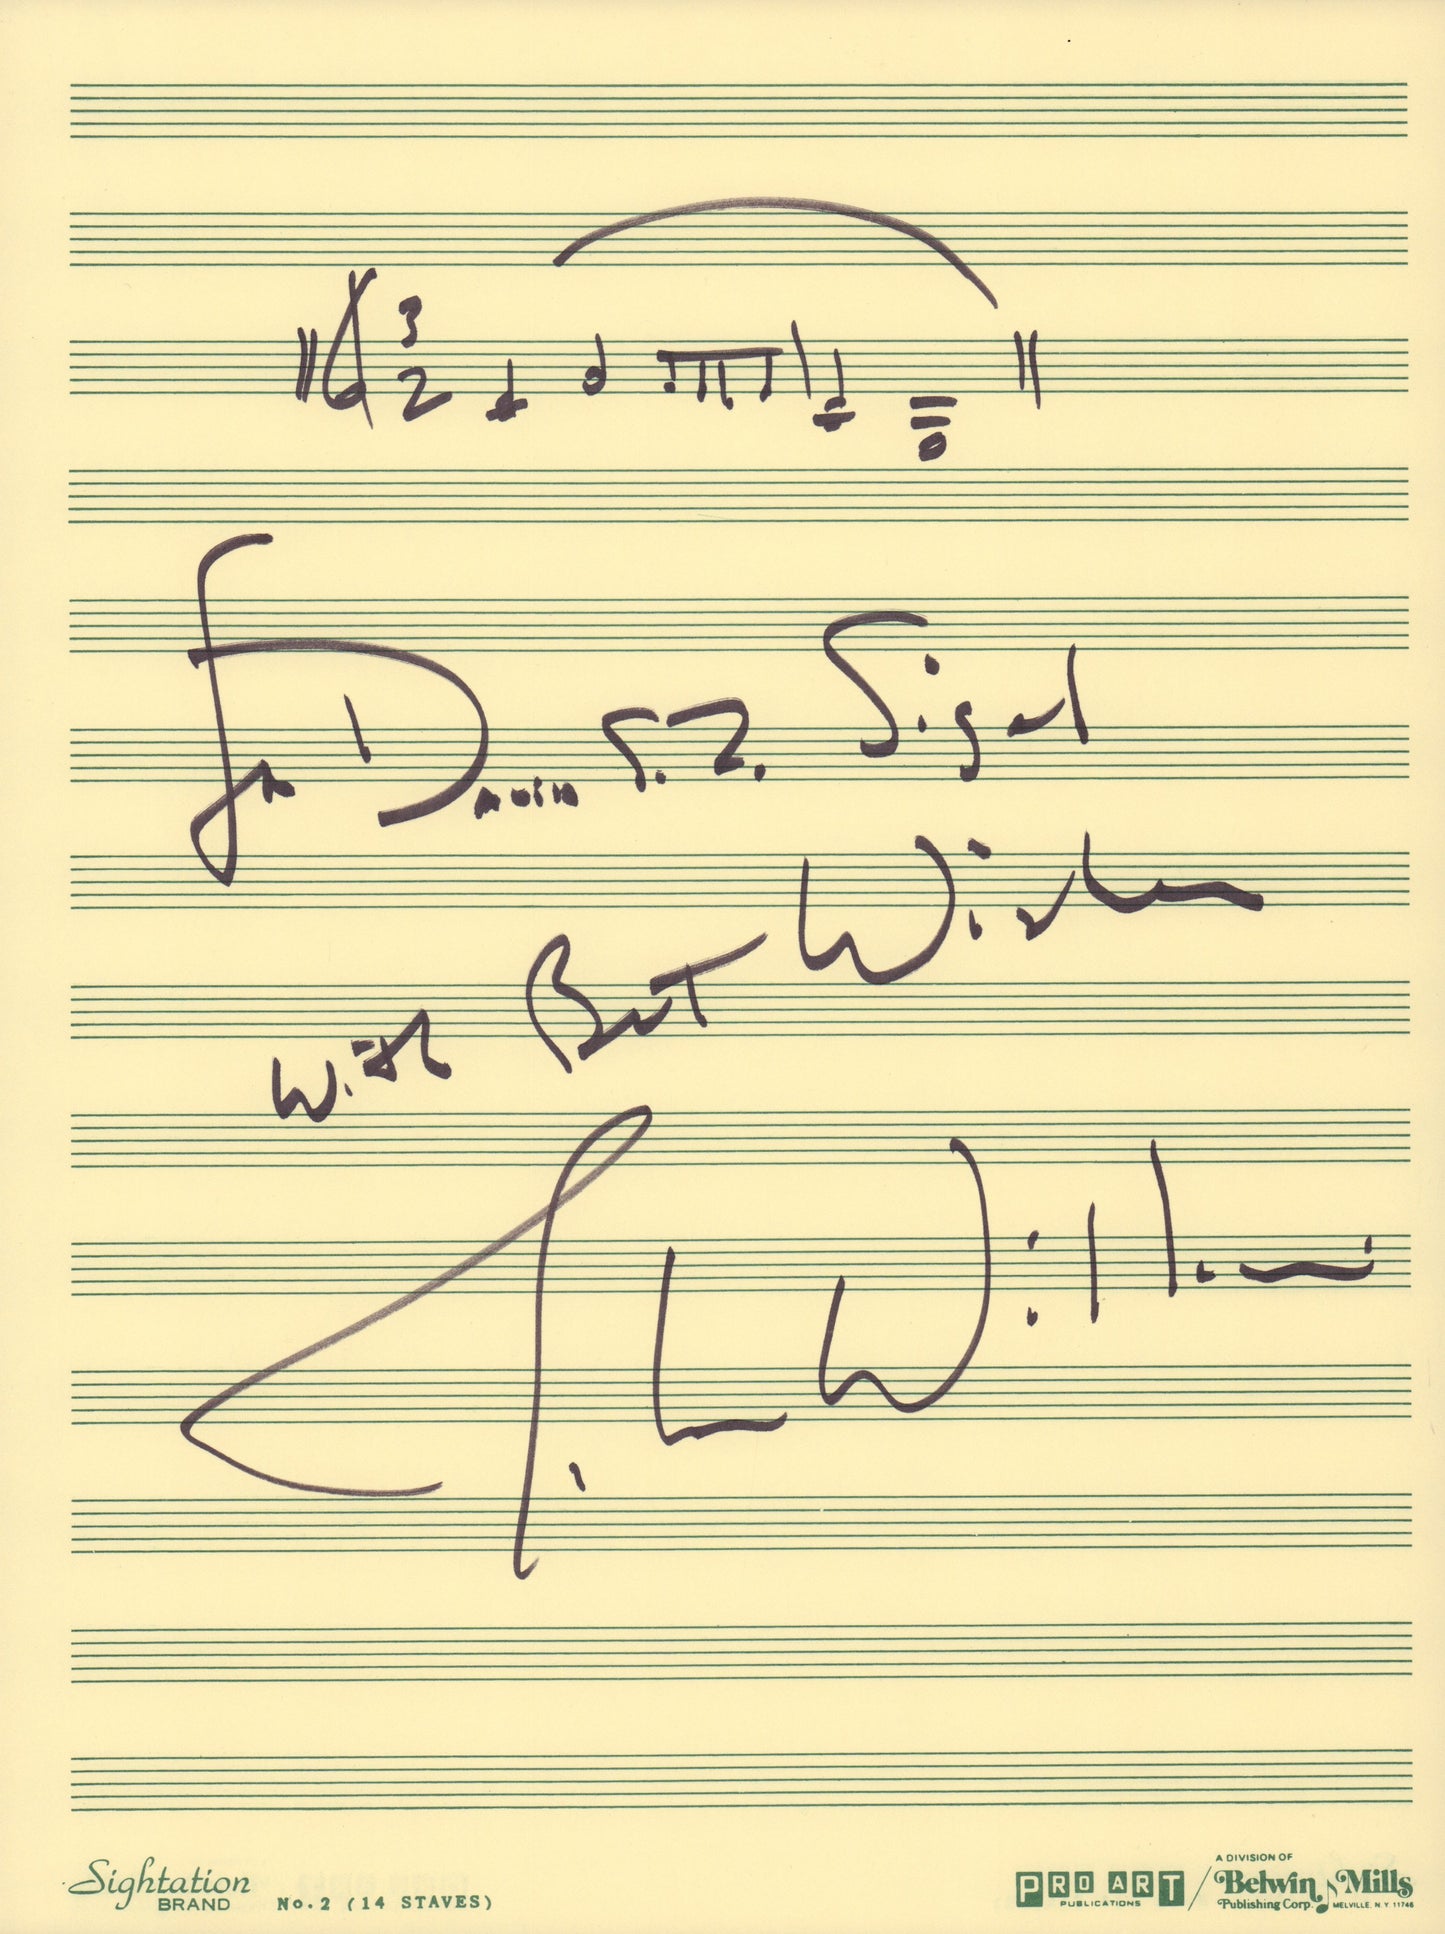 3
2
For David S. Z. Sigal
With Best Wishes
John Williams
Sightation
BRAND No.2 (14 STAVES)
PRO ART
PUBLICATIONS
A DIVISION OF
Belwin Mills
Publishing Corp. MELVILLE, N.Y. 11746